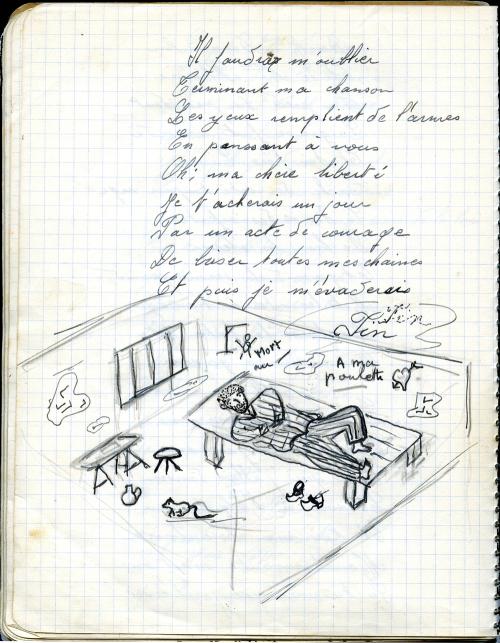 Il faudrat m'oublier
Terminant ma chanson
Les yeux remplient de l'armes
En penssant à vous
Oh; ma chère liberté
Je t'acherais un jour
Par un acte de courage
De briser toutes mes chaines
Et puis je m'évaderais
Fin
Mort
A ma
poulette